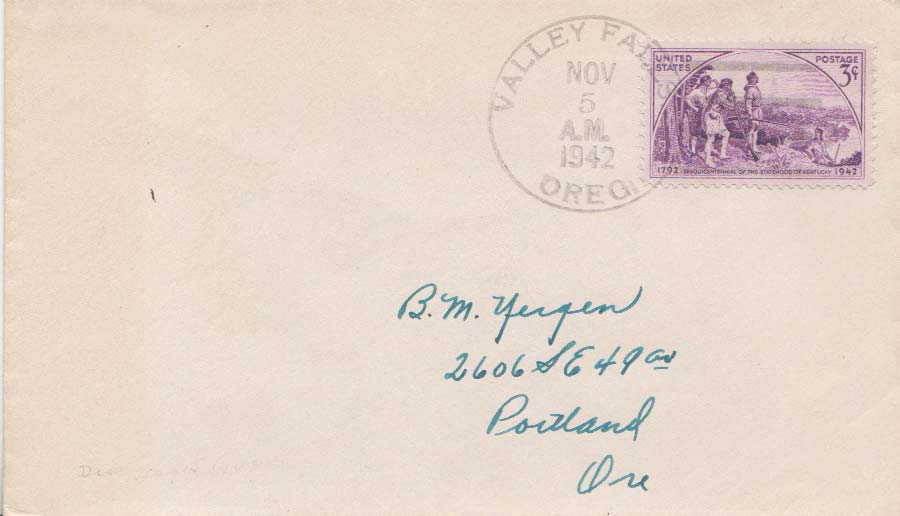 VALLEY FALLS
NOV
5
A.M.
1942
OREG.
UNITED STATES
POSTAGE
3¢
1792 SESQUICENTENNIAL OF THE STATEHOOD OF KENTUCKY 1942
B. M. Yergen
2606 S E 49 av
Portland
Ore